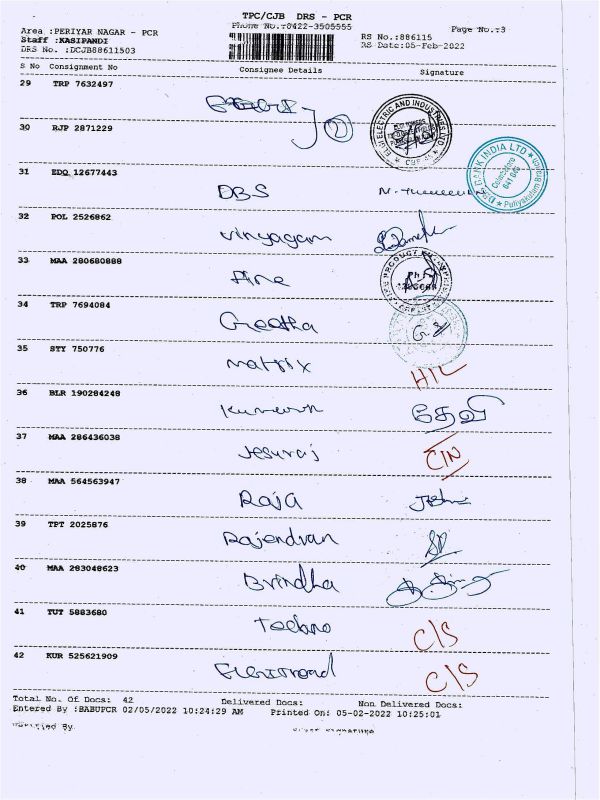 TPC/CJB DRS - PCR
Area :PERIYAR NAGAR - PCR Phone No.:0422-3505555 Page No.:3
Staff :KASIPANDI RS No.:886115
DRS No. :DCJB88611503 RS Date:05-Feb-2022
S No Consignment No Consignee Details Signature
29 TRP 7632497
30 RJP 2871229
ELECTRIC AND INDUSTRIES LTD
31 EDQ 12677443
DBS
BANK INDIA LTD
Coimbatore
641 045
Puliyakulam
32 POL 2526862
Vinyagam
33 MAA 280680888
Fine
34 TRP 7694084
Geetha
35 STY 750776
matrix HIL
36 BLR 190284248
தேவி
37 MAA 286436038
Jesuraj C/N
38 MAA 564563947
Raja
39 TPT 2025876
Rajendran
40 MAA 283048623
Brindha
41 TUT 5883680
C/S
42 KUR 525621909
C/S
Total No. Of Docs: 42 Delivered Docs: Non Delivered Docs:
Entered By :BABUPCR 02/05/2022 10:24:29 AM Printed On: 05-02-2022 10:25:01
Verified By